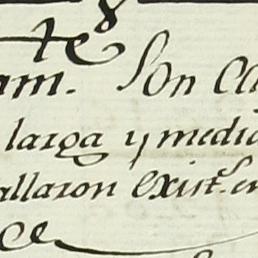 te
am. Son Ca
larga y medi
allaron exist. en